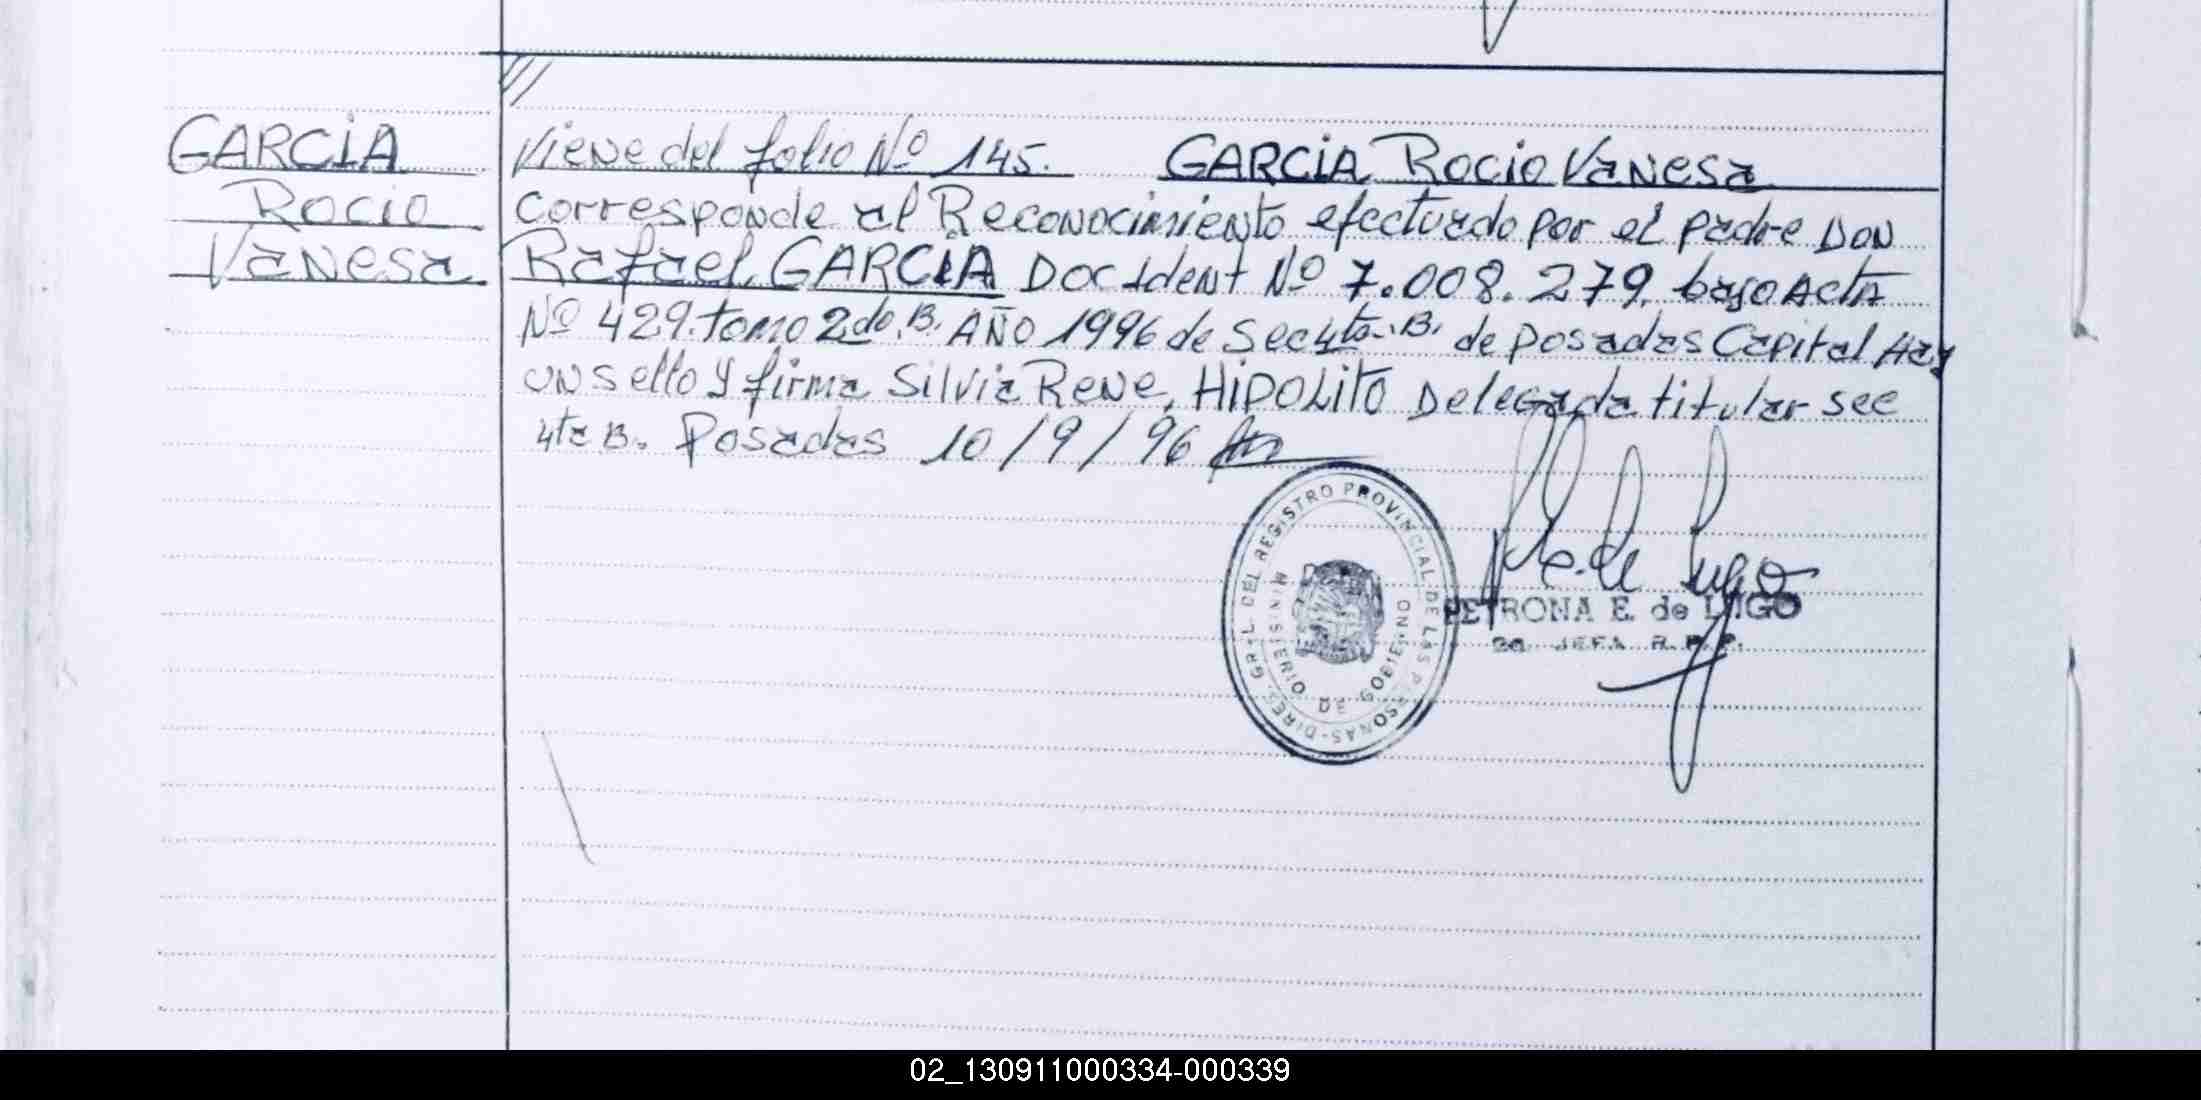 GARCIA
Rocio
Vanesa
Viene del folio Nº 145. GARCIA Rocio Vanesa
corresponde al Reconocimiento efectuado por el padre Don
Rafael GARCIA Doc Ident Nº 7.008.279. bajo Acta
Nº 429. tomo 2do. B. AÑO 1996 de Sec 4ta. B. de Posadas Capital Hay
un sello y firma Silvia Rene, HIPOLITO Delegada titular sec
4ta B. Posadas 10/9/96
DIREC. GRAL. DEL REGISTRO PROVINCIAL DE LAS PERSONAS
MINISTERIO DE GOBIERNO
PETRONA E. de LUGO
JEFA R.P.P.
02_130911000334-000339